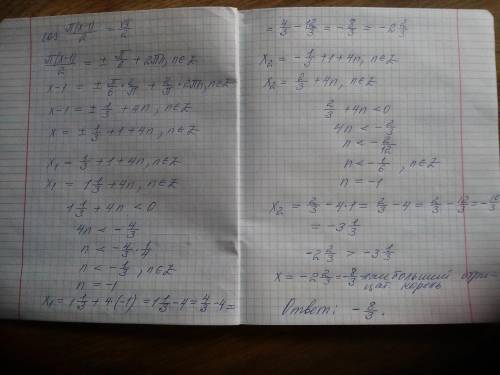 cos π(x-1)/2 = √3/2
π(x-1)/2 = ± π/6 + 2πn, n∈Z
x-1 = ± π/6 · 2/π + 2/π · 2πn, n∈Z
x-1 = ± 1/3 + 4n, n∈Z
x = ± 1/3 + 1 + 4n, n∈Z
x₁ = 1/3 + 1 + 4n, n∈Z
x₁ = 1 1/3 + 4n, n∈Z
1 1/3 + 4n < 0
4n < - 4/3
n < - 4/3 · 1/4
n < - 1/3, n∈Z
n = -1
x₁ = 1 1/3 + 4·(-1) = 1 1/3 - 4 = 4/3 - 4 =
= 4/3 - 12/3 = - 8/3 = -2 2/3
x₂ = - 1/3 + 1 + 4n, n∈Z
x₂ = 2/3 + 4n, n∈Z
2/3 + 4n < 0
4n < - 2/3
n < - 2/12
n < - 1/6, n∈Z
n = -1
x₂ = 2/3 - 4·1 = 2/3 - 4 = 2/3 - 12/3 = - 10/3
= -3 1/3
-2 2/3 > -3 1/3
x = -2 2/3 = - 8/3 - наибольший отри-
цат. корень
Ответ: - 8/3.